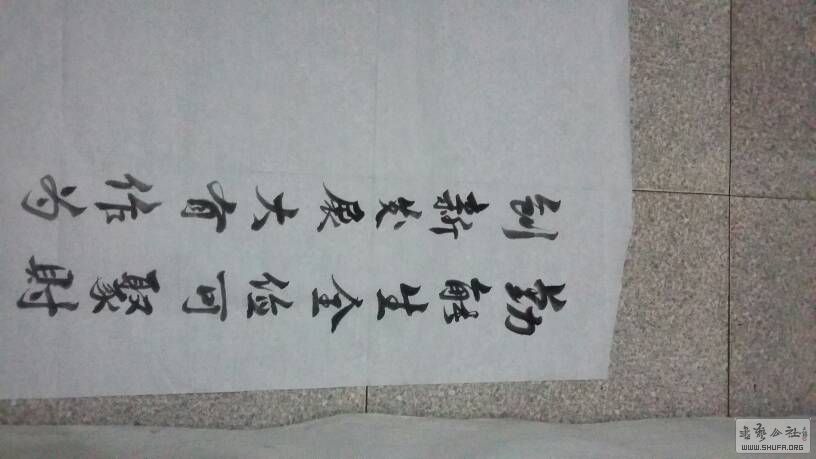 勤能生金俭可聚財
创新发展大有作为
书艺公社
WWW.SHUFA.ORG